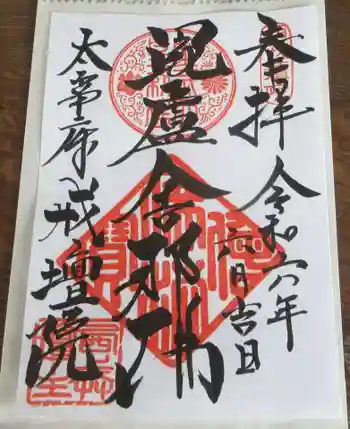 奉拝
令和六年
六月吉日
毘盧舎那仏
太宰府戒壇院